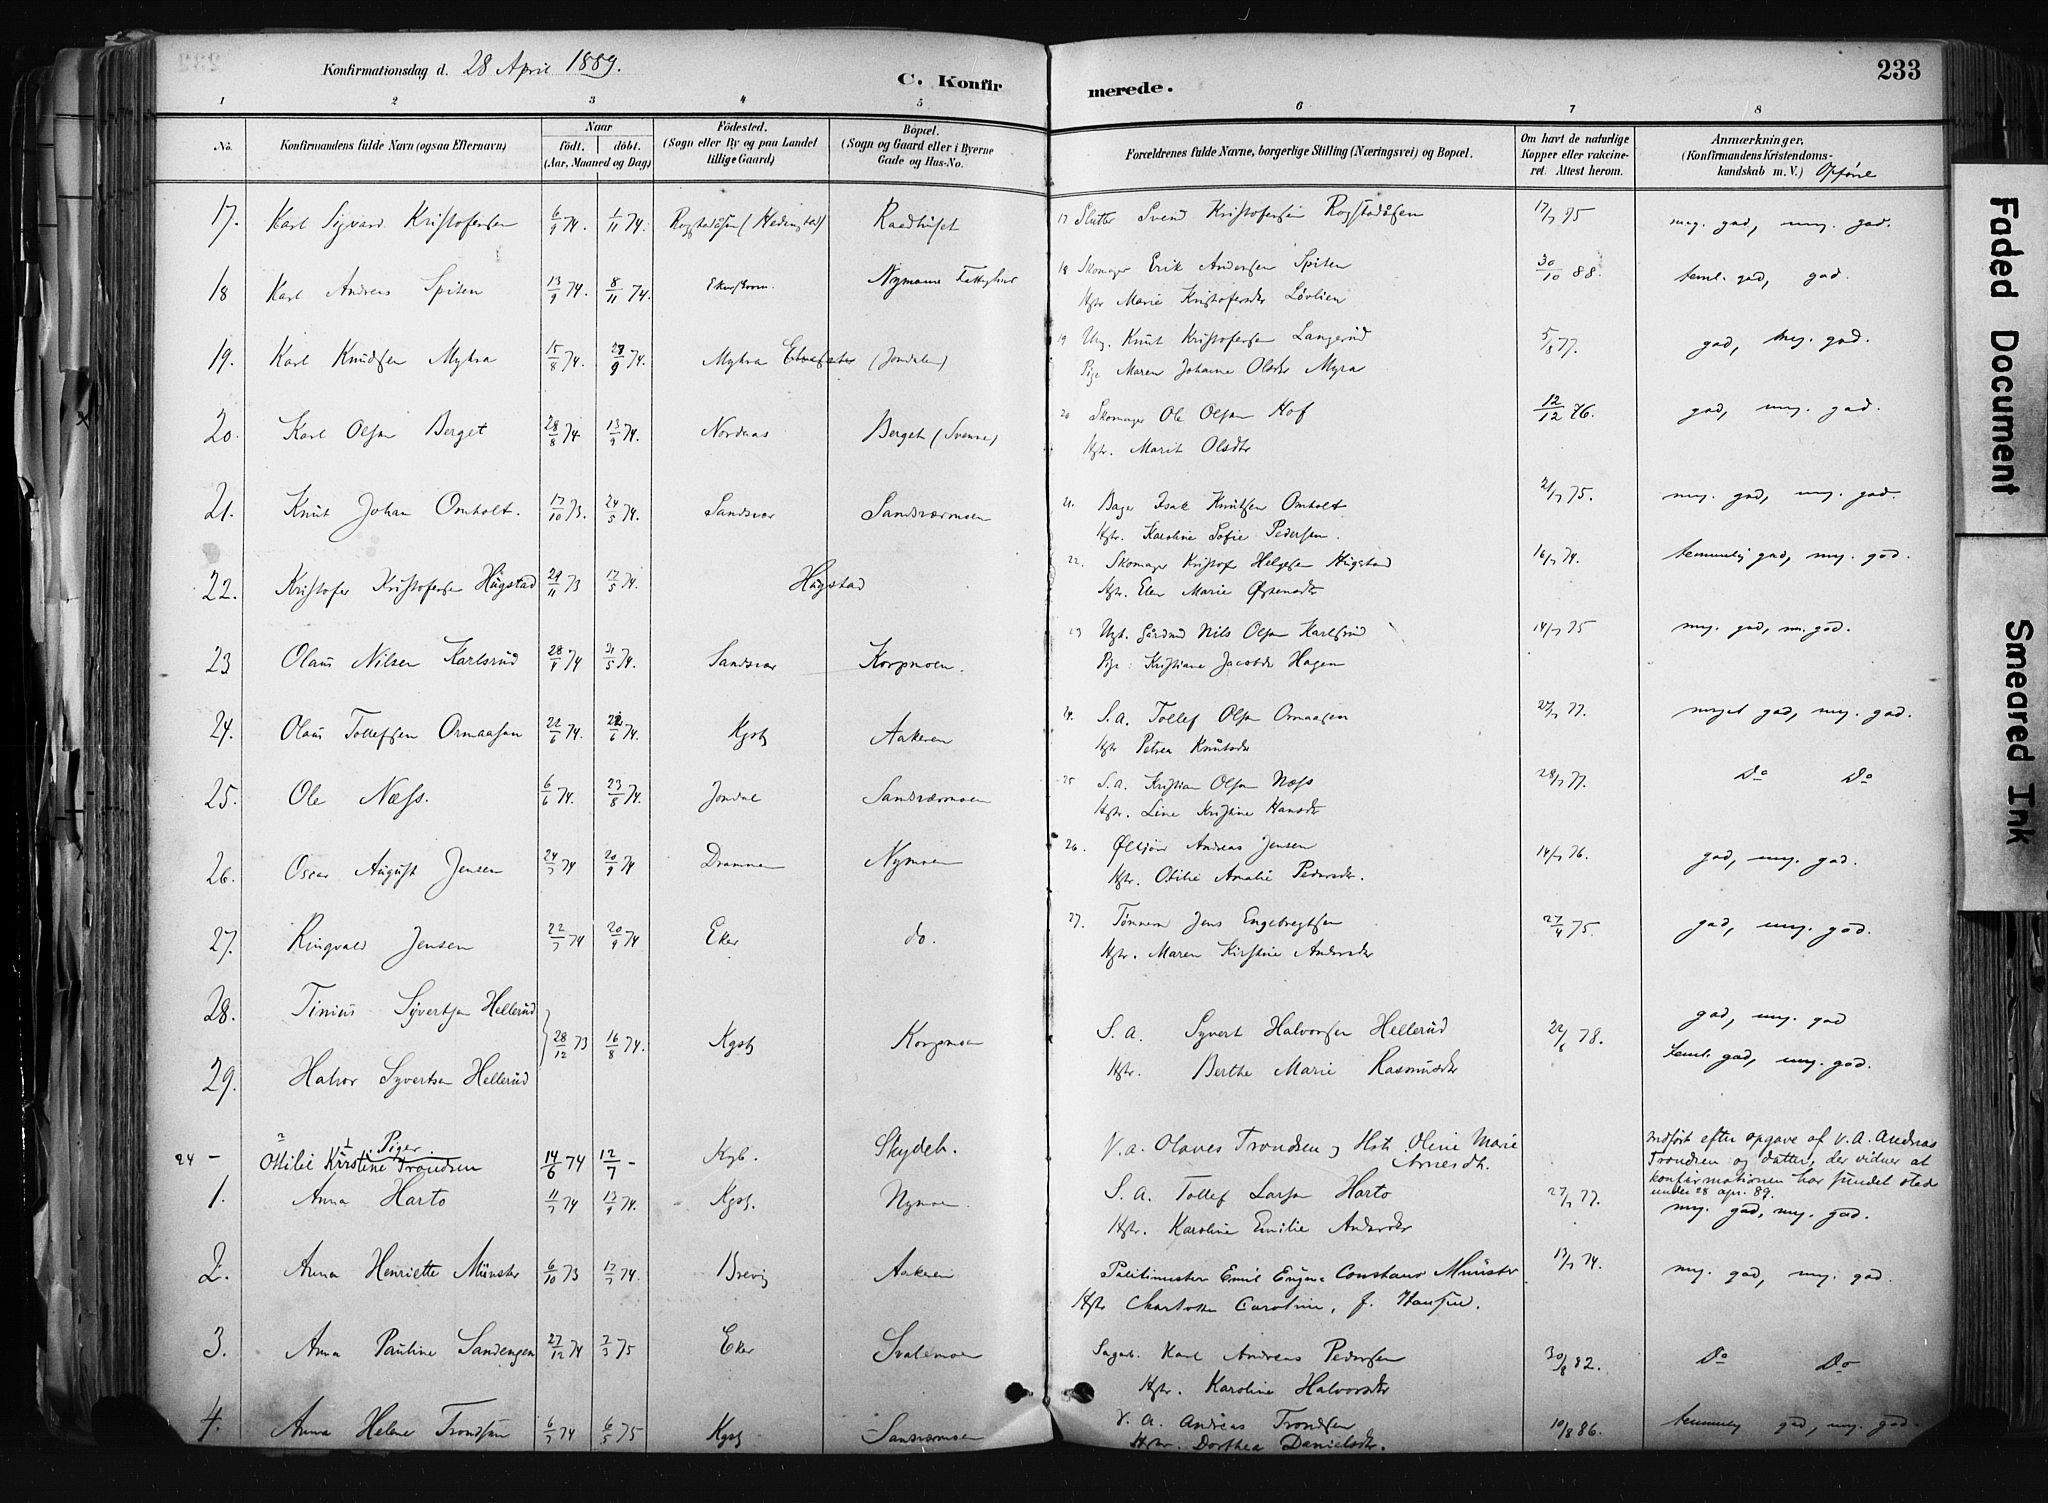 Konfirmationsdag d. 28 April 1889.
C. Konfir
merede.
233
1 2 3 4 5 6 7 8
No.
Konfirmandens fulde Navn (ogsaa Efternavn)
Naar
født. døbt.
(Aar, Maaned og Dag)
Födested.
(Sogn eller By og paa Landet tillige Gaard)
Bopæl.
(Sogn og Gaard eller i Byerne Gade og Hus-No.
Forældrenes fulde Navne, borgerlige Stilling (Næringsvei) og Bopæl.
Om havt de naturlige Kopper eller vakcineret. Attest herom.
Anmærkninger,
(Konfirmandens Kristendomskundskab m. V.) Opførsel
17. Karl Sigvard Kristofersen 6/9 74. 1/11 74. Rogstadåsen (Hedenstad) Raadhuset 17 Slutter Svend Kristofersen Rogstadåsen 17/7 95 meg. god, meg. god.
18 Karl Andreas Spiten 13/9 74. 8/11 74. Nymoens Fattighus 18 Skomager Erik Andersen Spiten 30/10 88. teml. god, god.
Hstr Marie Kristofersdtr Løvlien
19. Karl Knudsen Myhra 15/8 74. 27/9 74. Myhra (Jondalen) 19 Ung. Knut Kristofersen Langerud 5/8 77. god, meg. god.
Pige Maren Johanne Olsdtr Myra
20. Karl Olsen Berget 28/8 74 13/9 74. Nordaas Berget (Svene) 20 Skomager Ole Olsen Hof 12/12 76. god, meg. god.
Hstr. Marit Olsdtr
21. Knut Johan Omholt. 17/10 73. 24/5 74. Sandsvær Sandsværmoen 21. Bager Isak Knutsen Omholt 21/7 75. meg. god, meg. god.
Hstr. Karoline Sofie Pedersen.
22. Kristofer Kristofersen Hugstad 29/11 73 17/5 74. Hugstad 22. Skomager Kristofer Helgesen Hugstad 16/7 74. temmelig god, meg. god.
Hstr. Elen Marie Østensdtr
23 Olaus Nilsen Karlsrud 28/4 74 31/5 74. Sandsvær Korpmoen. 23 Ungk. Gårdmd Nils Olsen Karlsrud 14/7 75 meg. god, m. god.
Pige: Kristiane Jacobsdr Hagen
24. Olaus Tollefsen Ormaasen 22/6 74. Kgsbg Aakeren 24. S. A. Tollef Olsen Ormaasen 27/7 77. meget god, meg. god.
Hstr Petrea Knutsdr
25. Ole Næss. 6/6 74. 23/8 74. Jondal Sandsværmoen 25 S. A. Kristian Olsen Næss 28/7 77. Do Do
Hstr. Line Kristine Hansdtr
26. Oscar August Jensen 24/7 74 20/9 74 Drammen Nymoen 26. Ølkjører Andreas Jensen 14/7 76. god, meg. god.
Hstr. Otilie Amalie Pedersdr.
27. Ringvald Jensen 22/7 74 20/9 74 Eker do. 27. Tømmerm Jens Engebregtsen 27/4 75. god, meg. god.
Hstr. Maren Kirstine Andersdr
28. Tinius Syvertsen Hellerud god, meg. god
28/12 73 16/8 74. Kgsbg Korpmoen S. A. Syvert Halvorsen Hellerud 22/6 78.
29. Halvor Syvertsen Hellerud Hstr. Berthe Marie Rasmusdtr teml. god, meg. god.
Piger.
24 – Ottilie Kirstine Trondsen 14/6 74 12/7 – Kgb. Skydeb. V. a. Olaves Trondsen og Hstr. Oline Marie Arnesdtr. indført efter opgave af V. A. Andreas Trondsen og datter, der vidner at konfirmationen har fundet sted under 28 apr. 89.
1. Anna Harto 11/7 74 13/9 74. Kgsb. Nymoen. S. A. Tollef Larsen Harto 27/7 77. meg. god, meg. god.
Hstr. Karoline Emilie Andersdr
2. Anna Henriette Münster 6/10 73 17/7 74. Brevig Aakeren Politimester Emil Eugen Constans Münster 13/7 74. meg. god, meg. god.
Hstr Charlotte Caroline, f. Hansen.
3. Anna Pauline Sandengen 27/12 74 7/3 75 Eker Svalemoen Sagarb. Karl Andreas Pedersen 30/8 82. Do Do
Hstr. Karoline Halvorsdtr
4. Anna Helene Trondsen 6/7 74 6/5 75 Kgsbg Sandsværmoen V. A. Andreas Trondsen 10/8 86. temmelig god, meg. god.
Hstr. Dorthea Danielsdtr.
Faded Document
Smeared Ink